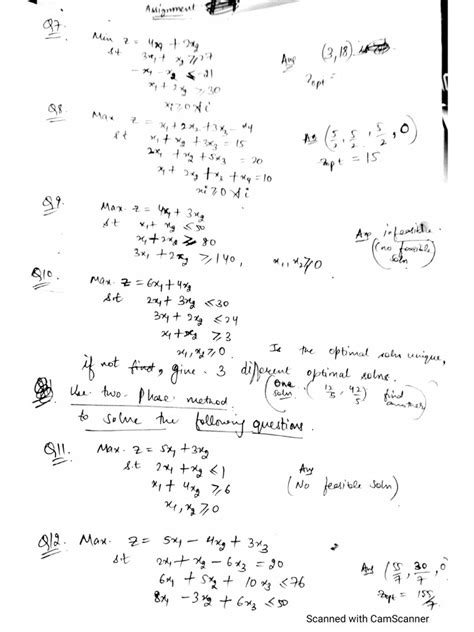 Assignment
Q7. Min z = 4x₁ + 2x₂
st 3x₁ + x₂ ≥ 27
-x₁ - x₂ ≤ -21
x₁ + 2x₂ ≥ 30
xi ≥ 0 ∀ i
Ans (3, 18)
zopt =
Q8. Max z = x₁ + 2x₂ + 3x₃ - x₄
st x₁ + x₂ + 3x₃ = 15
2x₁ + x₂ + 5x₃ = 20
x₁ + 2x₂ + x₃ + x₄ = 10
xi ≥ 0 ∀ i
Ans (5/2, 5/2, 5/2, 0)
zopt = 15
Q9. Max. z = 4x₁ + 3x₂
st x₁ + x₂ ≤ 50
x₁ + 2x₂ ≥ 80
3x₁ + 2x₂ ≥ 140, x₁, x₂ ≥ 0
Ans infeasible
(no feasible soln)
Q10. Max. z = 6x₁ + 4x₂
s.t 2x₁ + 3x₂ ≤ 30
3x₁ + 2x₂ ≤ 24
x₁ + x₂ ≥ 3
x₁, x₂ ≥ 0. Is the optimal soln unique,
if not find, give 3 different optimal solns.
(One soln. (12/5, 42/5) find another)
Use two Phase method
to solve the following questions.
Q11. Max. z = 5x₁ + 3x₂
s.t 2x₁ + x₂ ≤ 1
x₁ + 4x₂ ≥ 6
x₁, x₂ ≥ 0
Ans
(No feasible soln)
Q12. Max. z = 5x₁ - 4x₂ + 3x₃
st 2x₁ + x₂ - 6x₃ = 20
6x₁ + 5x₂ + 10x₃ ≤ 76
8x₁ - 3x₂ + 6x₃ ≤ 50
Ans (55/7, 30/7, 0
zopt = 155/7
Scanned with CamScanner